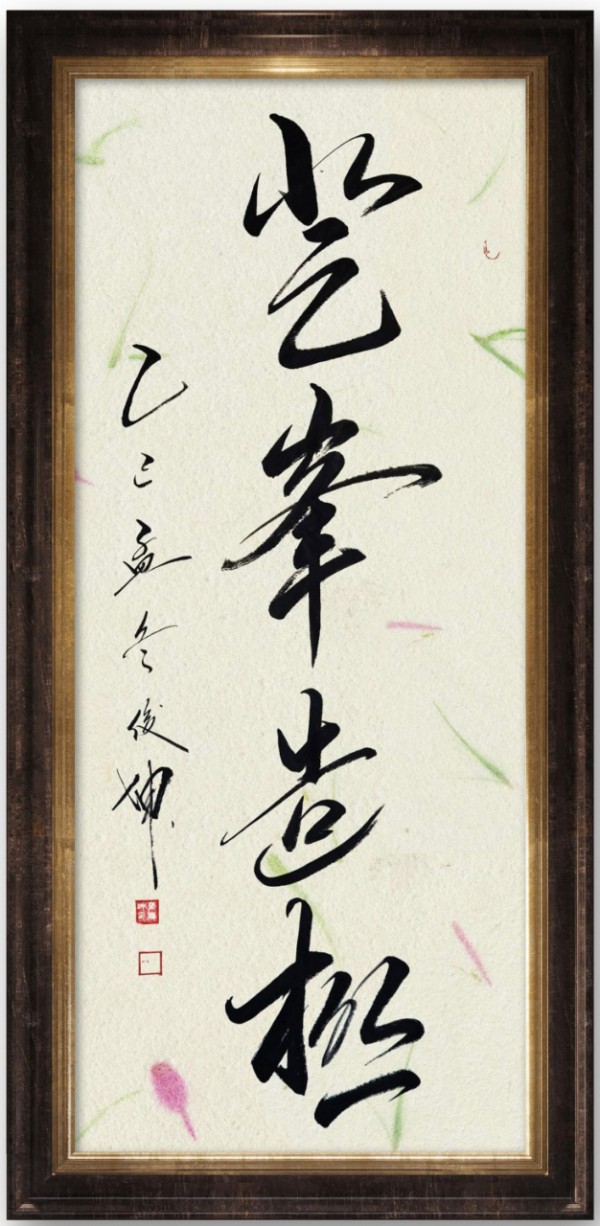 登峯造極
乙巳孟冬俊坤